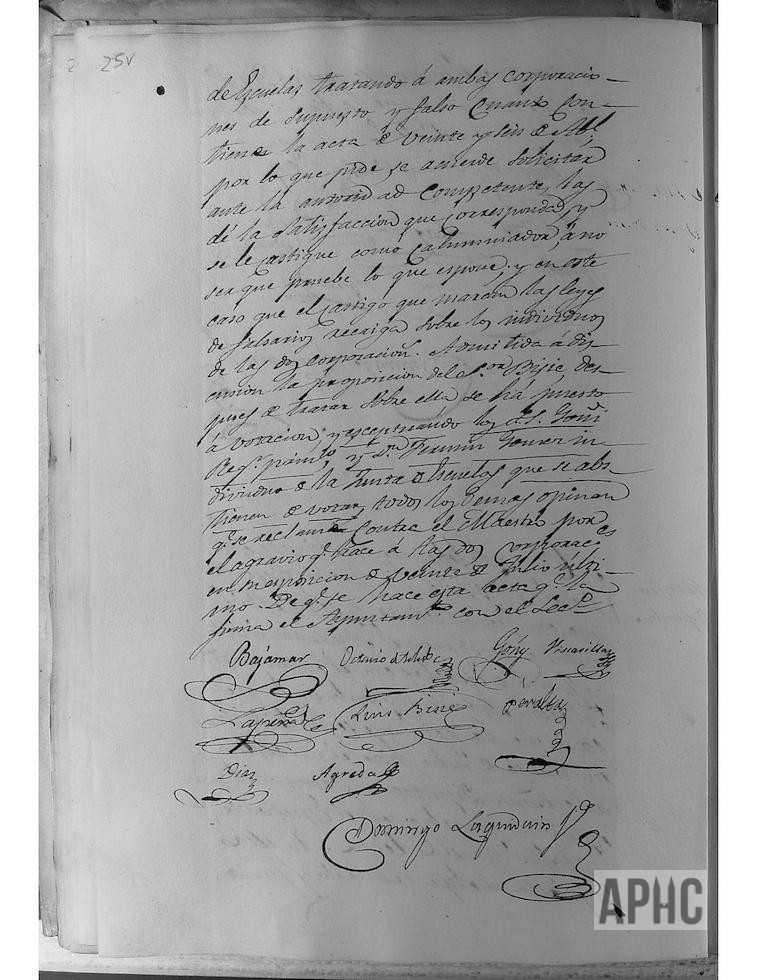 25v
de Escuelas tratando á ambas corporacio-
nes de supuesto y falso cuanto con-
tiene la acta de veinte y seis de Abl.
por lo que pide se acuerde solicitar
ante la autoridad competente, las
dé la satisfaccion que corresponda, y
se le castigue como calumniador, á no
ser que pruebe lo que espone, y en este
caso que el castigo que marcan las leyes
de falsarios recaiga sobre los individuos
de las dos corporacions. Admitida á dis-
cusion la proposicion del Sor. Bisie des-
pues de tratar sobre ella se há puesto
á votacion, y esceptuando los S.S. Goñi
y Dn. Fermin Gomez in-
dividuo de la Junta de Escuelas que se abs-
tienen de votar, todos los demas opinan
qe. se reclame contra el Maestro por
el agravio qe. hace á las dos corporaces
en su esposicion de veinte de Julio ulti-
mo. De qe. se hace esta acta qe. la
firma el Ayuntamto. con el Secro.
Bajamar
Goñy
Lapeña
Luis Bisie
Peralta
Diaz
Agreda
Domingo
APHC